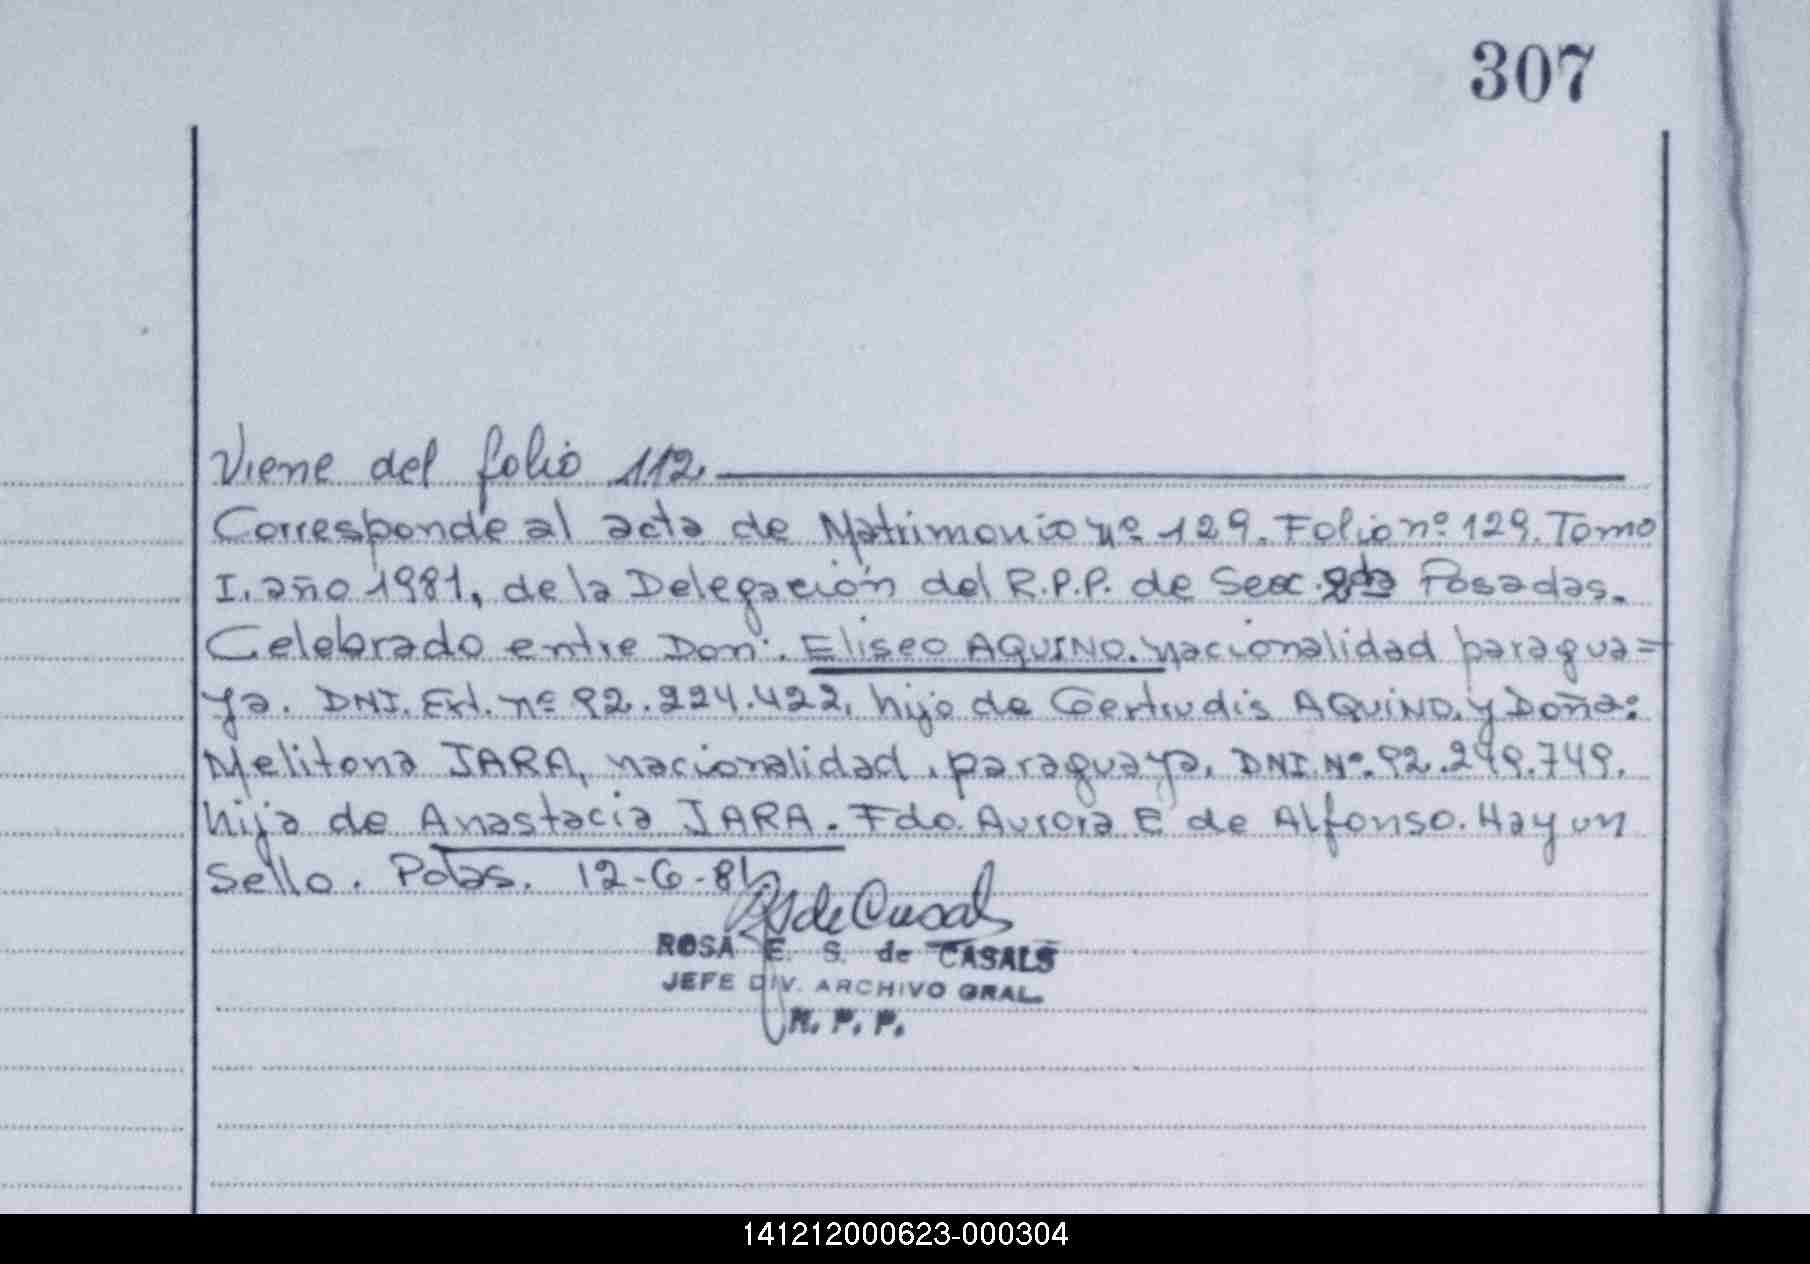 307
Viene del folio 112.
Corresponde al acta de Matrimonio nº 129. Folio nº 129. Tomo
I. año 1981, de la Delegación del R.P.P. de Secc. 2da Posadas.
Celebrado entre Don: Eliseo AQUINO. nacionalidad paragua=
ya. DNI. Ext. nº 92.224.422, hijo de Gertrudis AQUINO. y Doña:
Melitona JARA, nacionalidad, paraguaya, DNI. Nº. 92.249.749.
hija de Anastacia JARA. Fdo. Aurora E de Alfonso. Hay un
Sello. Pdas. 12-6-81
RS de Casals
ROSA E. S. de CASALS
JEFE DIV. ARCHIVO GRAL.
R. P. P.
141212000623-000304